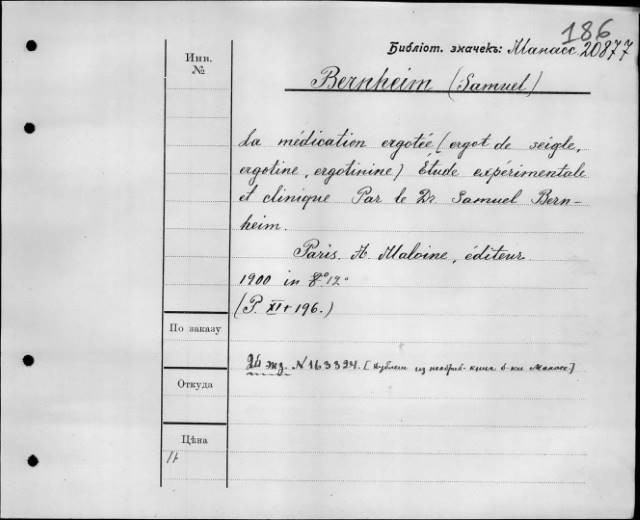 186
Библіот. значекъ: Манасс 20877
Инв.
№
Bernheim (Samuel)
La médication ergotée (ergot de seigle,
ergotine, ergotinine) Étude expérimentale
et clinique Par le Dr Samuel Bern-
heim.
Paris. A Maloine, éditeur
1900 in 8º 12º
(P. XI + 196.)
По заказу
2й экз. № 163394. [Дублет из необраб. книг б-ки Манасс.]
Откуда
Цѣна